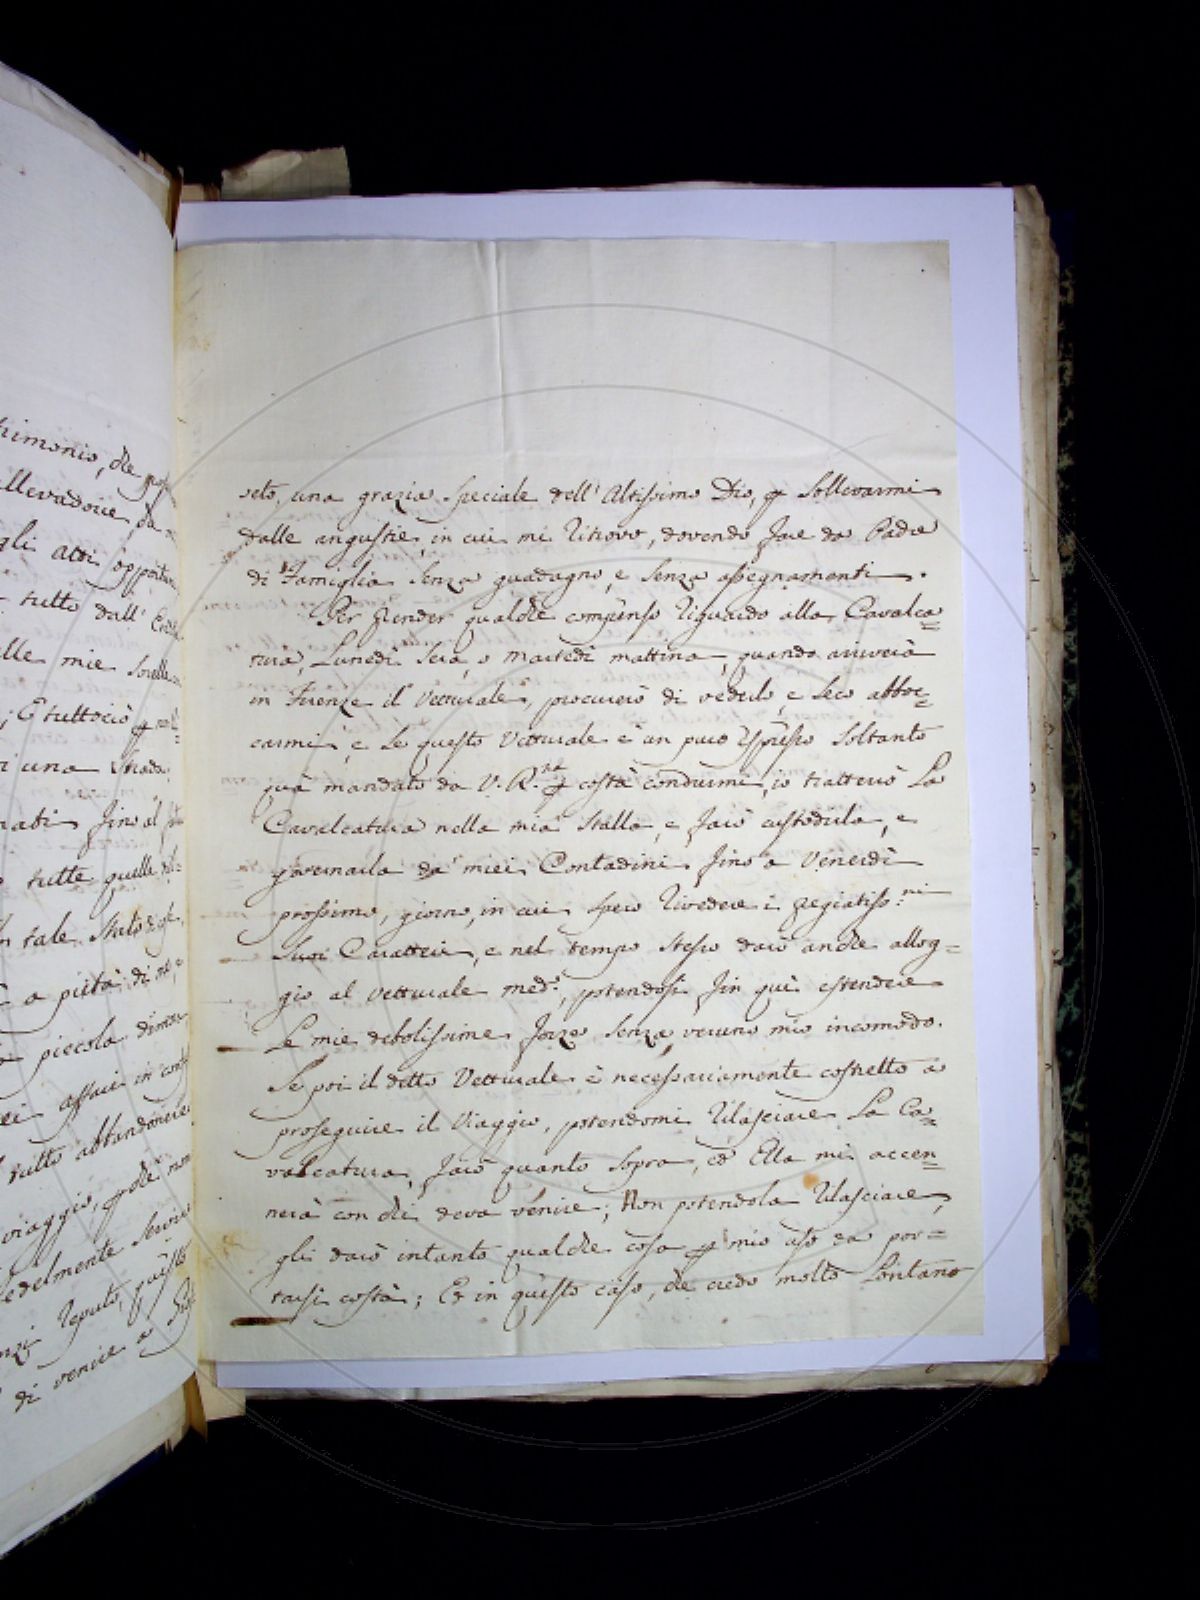 trimonio, che
llevadorie da
gli atti opportu
tutto dall'
lle mie sorelle
; E tuttociò p
i una strada
rati fino al
tutte quelle
n tale stato di
a pietà di me, e
piccola dimora
ei affari in
tutto abbandonere
viaggio, p che non
edelmente servir
nzi reputo, questo
di venire a
seto, una grazia speciale dell' Altissimo Dio, p sollevarmi
dalle angustie, in cui mi ritrovo, dovendo fare da Padre
di Famiglia senza guadagno, e senza assegnamenti.
Per prender qualche compenso riguardo alla Cavalca=
tura, Lunedì sera, o martedì mattina, quando arriverà
in Firenze il Vetturale, procurerò di vederlo, e seco abboc=
carmi, e se questo Vetturale è un puro espresso soltanto
quà mandato da V. R.za p costà condurmi, io tratterrò la
Cavalcatura nella mia stalla, e farò custodirla, e
governarla da' miei Contadini fino a Venerdì
prossimo, giorno, in cui spero rivedere i pregiatiss.mi
Suoi Caratteri, e nel tempo stesso darò anche allog=
gio al Vetturale med.o, potendosi fin qui estendere
le mie debolissime forze senza veruno mio incomodo.
Se poi il detto Vetturale è necessariamente costretto a
proseguire il Viaggio, potendomi rilasciare la Ca=
valcatura, farò quanto sopra, ed Ella mi accen=
nerà con chi deva venire; Non potendola rilasciare,
gli darò intanto qualche cosa p mio uso da por=
tarsi costà; Ed in questo caso, che credo molto lontano